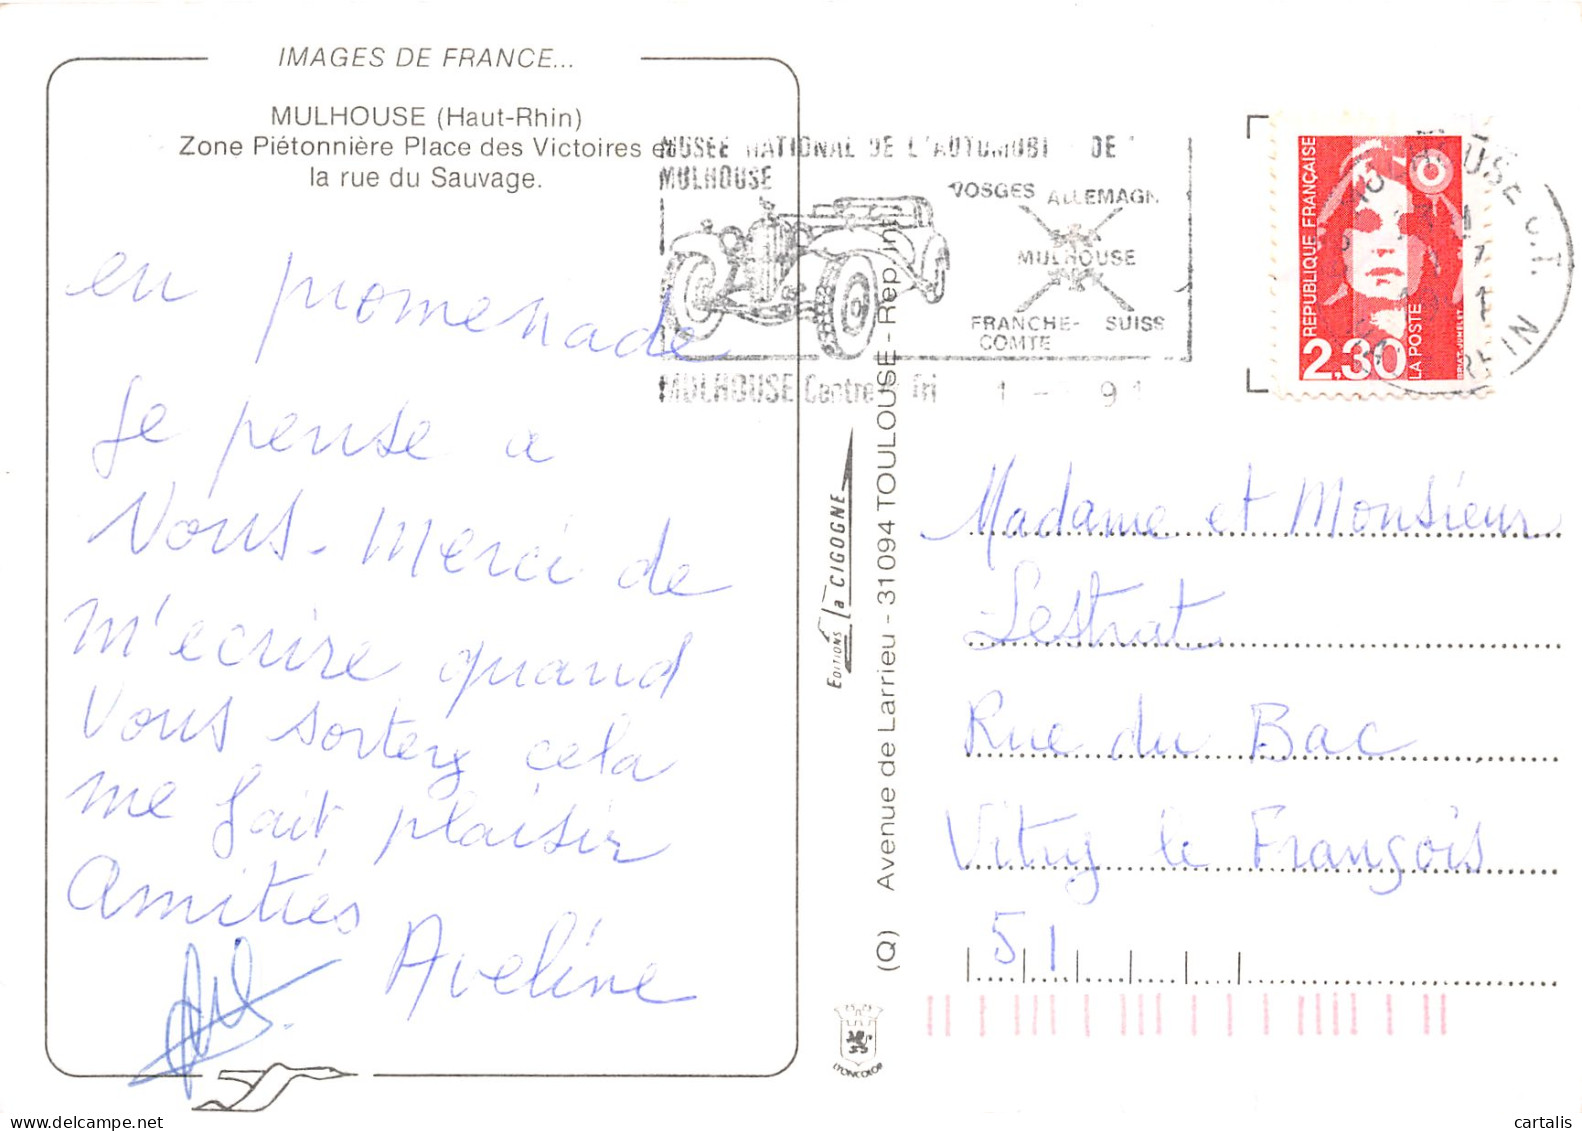 IMAGES DE FRANCE...
MULHOUSE (Haut-Rhin)
Zone Piétonnière Place des Victoires et
la rue du Sauvage.
en promenade
Je pense a
Vous - Merci de
m'ecrire quand
Vous sortez cela
me fait plaisir
Amitiés
Aveline
MUSÉE NATIONAL DE L'AUTOMOBI DE
MULHOUSE
VOSGES ALLEMAGN
MULHOUSE
FRANCHE- SUISS
COMTE
MULHOUSE Centre Tri 1 - 91
RÉPUBLIQUE FRANÇAISE
2,30
LA POSTE
BRIAT-JUMELET
EDITIONS La CIGOGNE
(Q) Avenue de Larrieu - 31094 TOULOUSE - Rep. int.
Madame et Monsieur
Lestrat
Rue du Bac
Vitry le François
51
LYONCOLOR
cartalis